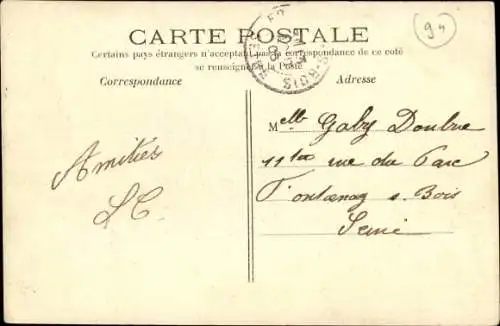 94
CARTE POSTALE
Certains pays étrangers n'acceptant pas la correspondance de ce coté
se renseigner à la Poste
Correspondance
Adresse
Melle Gaby Doubre
11ter rue du Parc
Fontenay s. Bois
Seine
Amitiés
LC